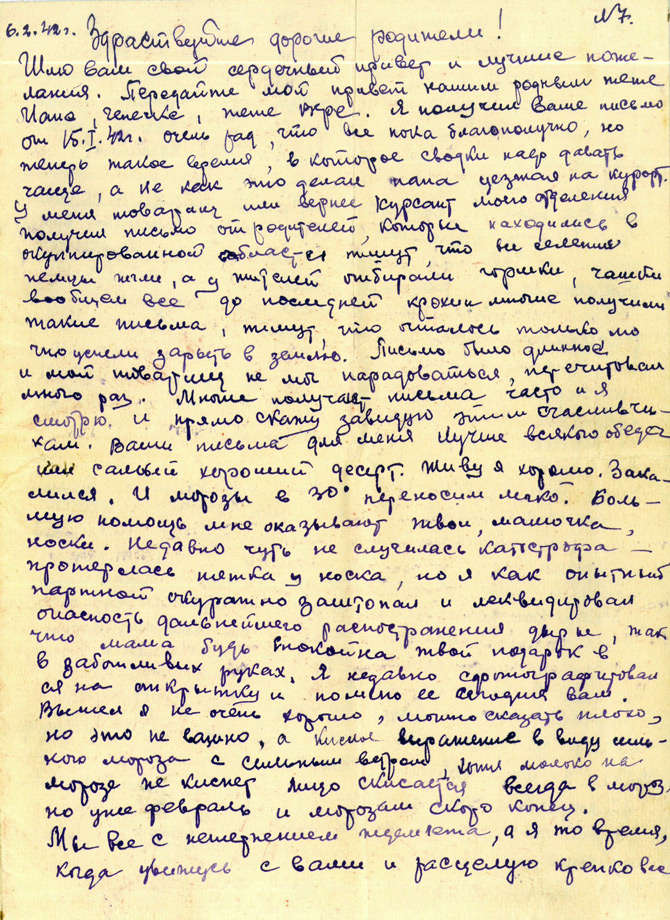 6.2.42 г. Здраствуйте дорогие родители! №7.
Шлю вам свой сердечный привет и лучшие поже-
лания. Передайте мой привет нашим родным тете
тете Я получил Ваше письмо
от 15.I.42г. очень рад, что все пока благополучно, но
теперь такое время, в которое сводки надо давать
чаще, а не как это делал папа уезжая на курорт.
У меня товарищ или вернее курсант моего отделения
получил письмо от родителей, которые находились в
оккупированной области пишут, что все селения
немцы жгли, а у жителей отбирали горшки, чашки
вообщем все до последней крохи многие получили
такие письма, пишут, что осталось только то
что успели зарыть в землю. Письмо было длинное
и мой товарищ не мы парадоваться, перечитовал
много раз. Многие получают письма часто и я
смотрю и прямо скажу завидую этим счасливчи-
кам. Ваши письма для меня лучше всякого обеда
как самый хороший десерт. Живу я хорошо. Зака-
лился. И морозы в 30° переносим легко. Боль-
шую помощь мне оказывают твои, мамочка,
носки. Недавно чуть не случилась катострофа —
протерлась пятка у носка, но я как опытный
партной окуратно заштопал и леквидировал
опасность дальнейшего распостранения дырки, так
что мама будь спокойна твой подарок в
заботливых руках. Я недавно сфотографировал
ся на открытку и пошлю ее сегодня вам.
Вышел я не очень хорошо, можно сказать плохо,
но это не важно, а кислое выражение в виду силь-
ного мороза с сильным ветром, хотя молоко на
морозе не киснет лицо скисается всегда в мороз,
но уже февраль и морозам скоро конец.
Мы все с нетерпением ждем лета, а я то время,
когда увижусь с вами и расцелую крепко вас